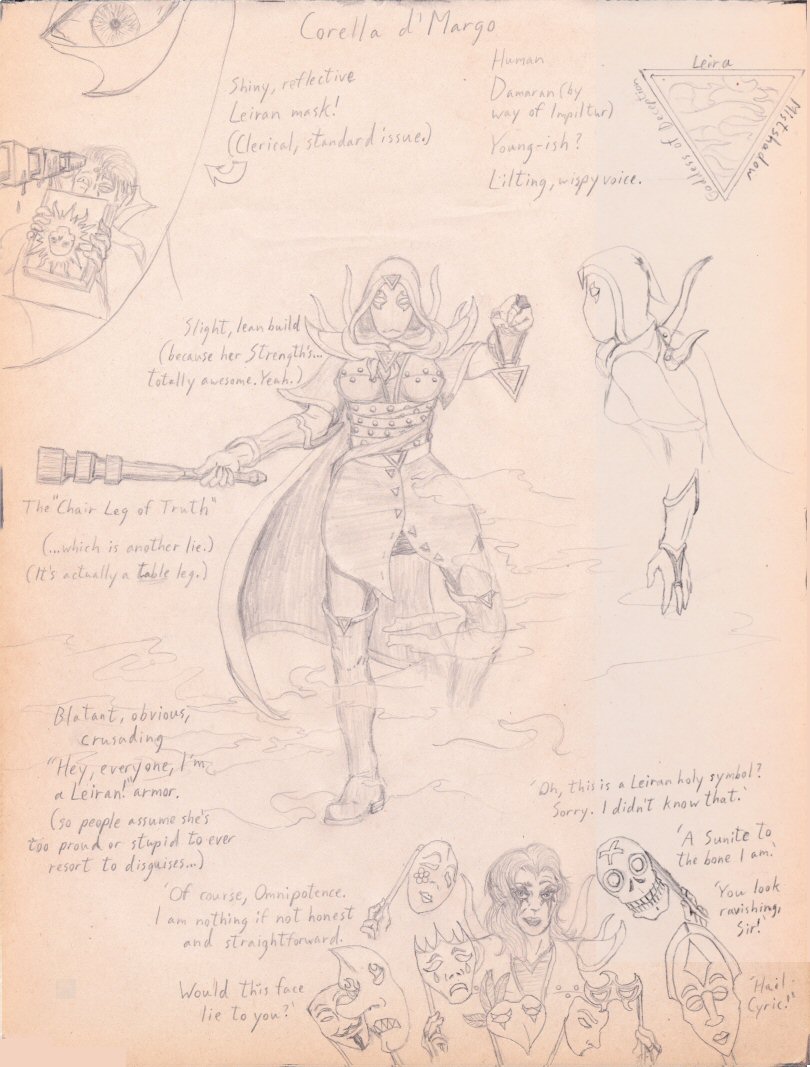 Corella d'Margo
Human
Damaran (by
way of Impiltur)
Young-ish?
Lilting, wispy voice.
Leira
Mistshadow
Goddess of Deception
Shiny, reflective
Leiran mask!
(Clerical, standard issue.)
Slight, lean build
(because her Strength's...
totally awesome. Yeah.)
The "Chair Leg of Truth"
(...which is another lie.)
(It's actually a table leg.)
Blatant, obvious,
crusading
"Hey, everyone, I'm
a Leiran!" armor.
(so people assume she's
too proud or stupid to ever
resort to disguises...)
'Oh, this is a Leiran holy symbol?
Sorry. I didn't know that.'
'A Sunite to
the bone I am.'
'You look
ravishing,
Sir!'
'Of course, Omnipotence.
I am nothing if not honest
and straightforward.
Would this face
lie to you?'
'Hail
Cyric!'